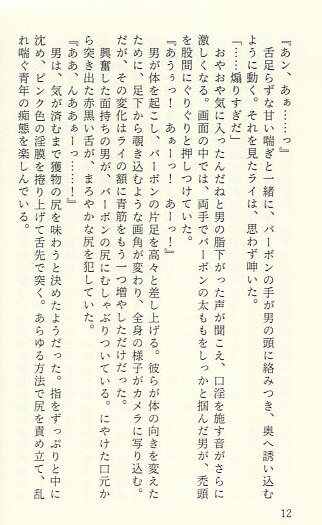 『あン、あぁ……っ』
　舌足らずな甘い喘ぎと一緒に、バーボンの手が男の頭に絡みつき、奥へ誘い込む
ように動く。それを見たライは、思わず呻いた。
「……煽りすぎだ」
　おやおや気に入ったんだねと男の脂下がった声が聞こえ、口淫を施す音がさらに
激しくなる。画面の中では、両手でバーボンの太ももをしっかと掴んだ男が、禿頭
を股間にぐりぐりと押しつけていた。
『あうぅっ！　あぁーっ！　あーっ！』
　男が体を起こし、バーボンの片足を高々と差し上げる。彼らが体の向きを変えた
ために、足下から覗き込むような画角が変わり、全身の様子がカメラに写り込む。
だが、その変化はライの額に青筋をもう一つ増やしただけだった。
　興奮した面持ちの男が、バーボンの尻にむしゃぶりついている。にやけた口元か
ら突き出た赤黒い舌が、まろやかな尻を犯していた。
『ああ、んああぁーっ……！』
　男は、気が済むまで獲物の尻を味わうと決めたようだった。指をずっぷりと中に
沈め、ピンク色の淫膜を捲り上げて舌先で突く。あらゆる方法で尻を責め立て、乱
れ喘ぐ青年の痴態を楽しんでいる。
12